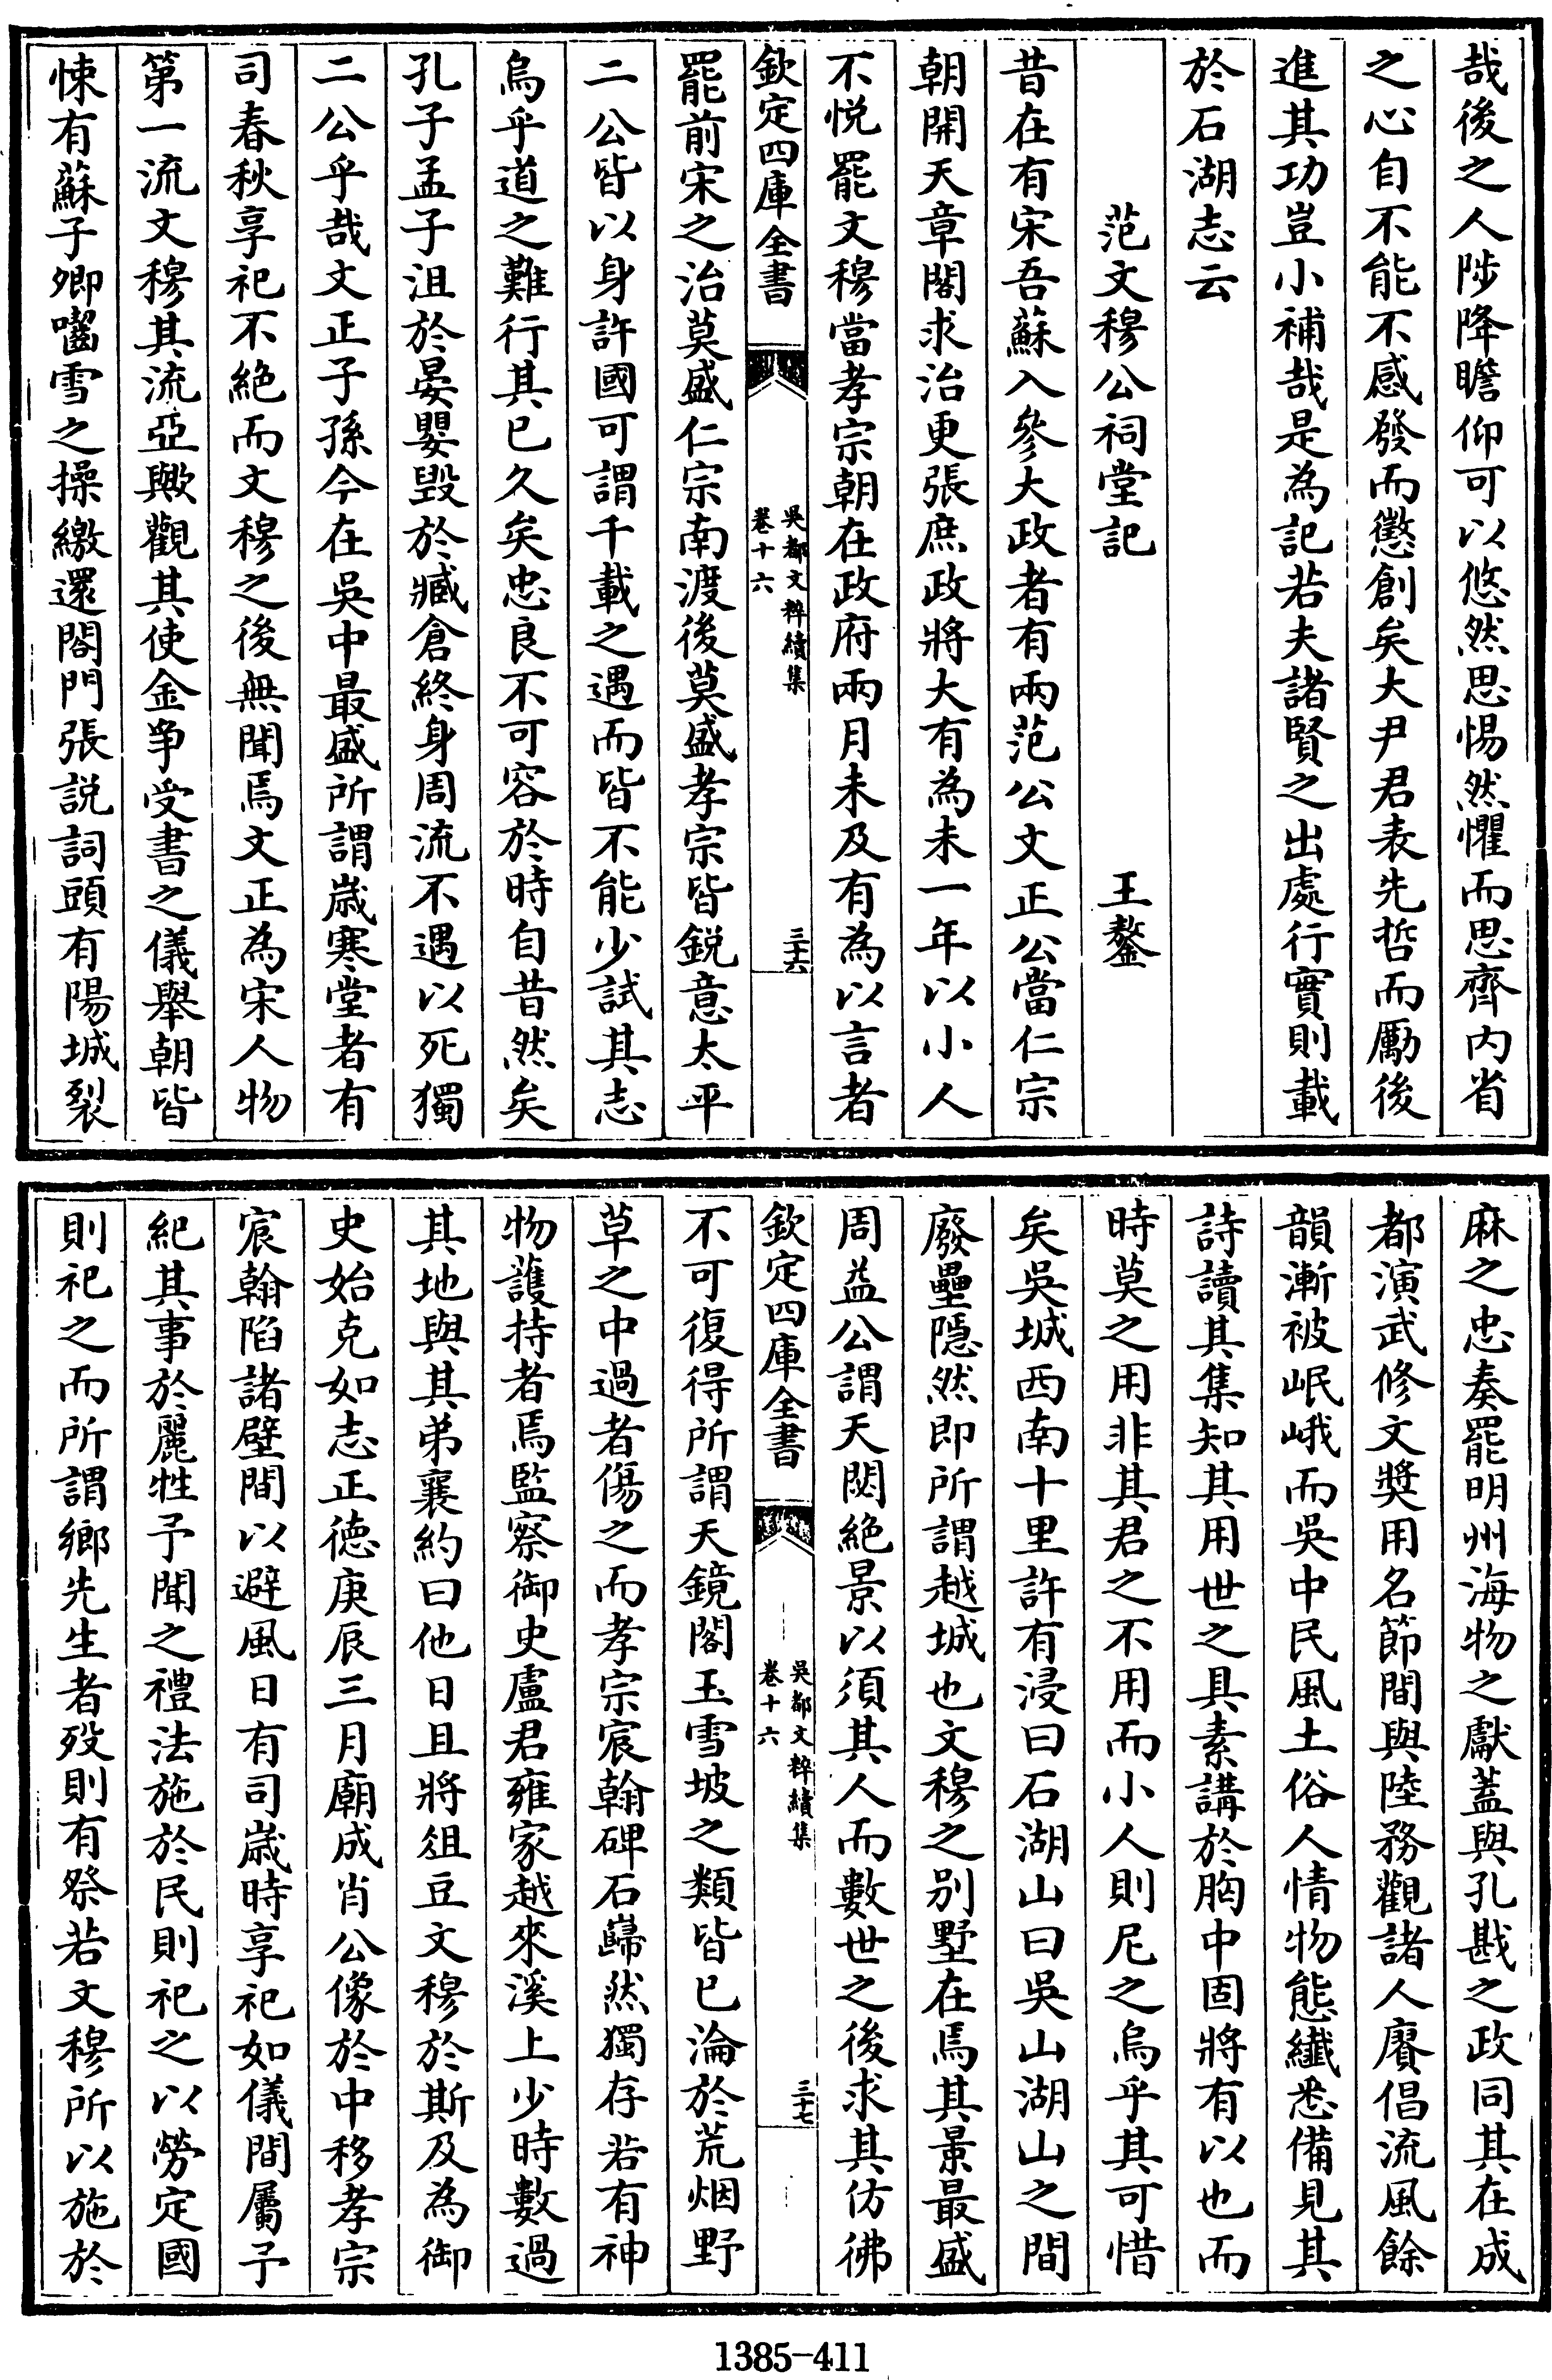 哉後之人陟降瞻仰可以悠然思惕然懼而思齊内省
之心自不能不感發而懲創矣大尹君表先哲而勵後
進其功豈小補哉是為記若夫諸賢之出處行實則載
於石湖志云
范文穆公祠堂記 王鏊
昔在有宋吾蘇入參大政者有兩范公文正公當仁宗
朝開天章閣求治更張庶政將大有為未一年以小人
不悦罷文穆當孝宗朝在政府兩月未及有為以言者
欽定四庫全書 吳都文粹續集 卷十六 三十六
罷前宋之治莫盛仁宗南渡後莫盛孝宗皆鋭意太平
二公皆以身許國可謂千載之遇而皆不能少試其志
烏乎道之難行其已久矣忠良不可容於時自昔然矣
孔子孟子沮於晏嬰毀於臧倉終身周流不遇以死獨
二公乎哉文正子孫今在吳中最盛所謂歲寒堂者有
司春秋享祀不絶而文穆之後無聞焉文正為宋人物
第一流文穆其流亞歟觀其使金爭受書之儀舉朝皆
悚有蘇子卿囓雪之操繳還閤門張説詞頭有陽城裂
麻之忠奏罷明州海物之獻蓋與孔戡之政同其在成
都演武修文奬用名節間與陸務觀諸人賡倡流風餘
韻漸被岷峨而吳中民風土俗人情物態纎悉備見其
詩讀其集知其用世之具素講於胸中固將有以也而
時莫之用非其君之不用而小人則尼之烏乎其可惜
矣吳城西南十里許有浸曰石湖山曰吳山湖山之間
廢壘隱然即所謂越城也文穆之别墅在焉其景最盛
周益公謂天閟絶景以須其人而數世之後求其仿彿
欽定四庫全書 吳都文粹續集 卷十六 三十七
不可復得所謂天鏡閣玉雪坡之類皆已淪於荒烟野
草之中過者傷之而孝宗宸翰碑石巋然獨存若有神
物護持者焉監察御史盧君雍家越來溪上少時數過
其地與其弟襄約曰他日且將俎豆文穆於斯及為御
史始克如志正德庚辰三月廟成肖公像於中移孝宗
宸翰陷諸壁間以避風日有司歲時享祀如儀間屬予
紀其事於麗牲予聞之禮法施於民則祀之以勞定國
則祀之而所謂鄉先生者歿則有祭若文穆所以施於
1385-411